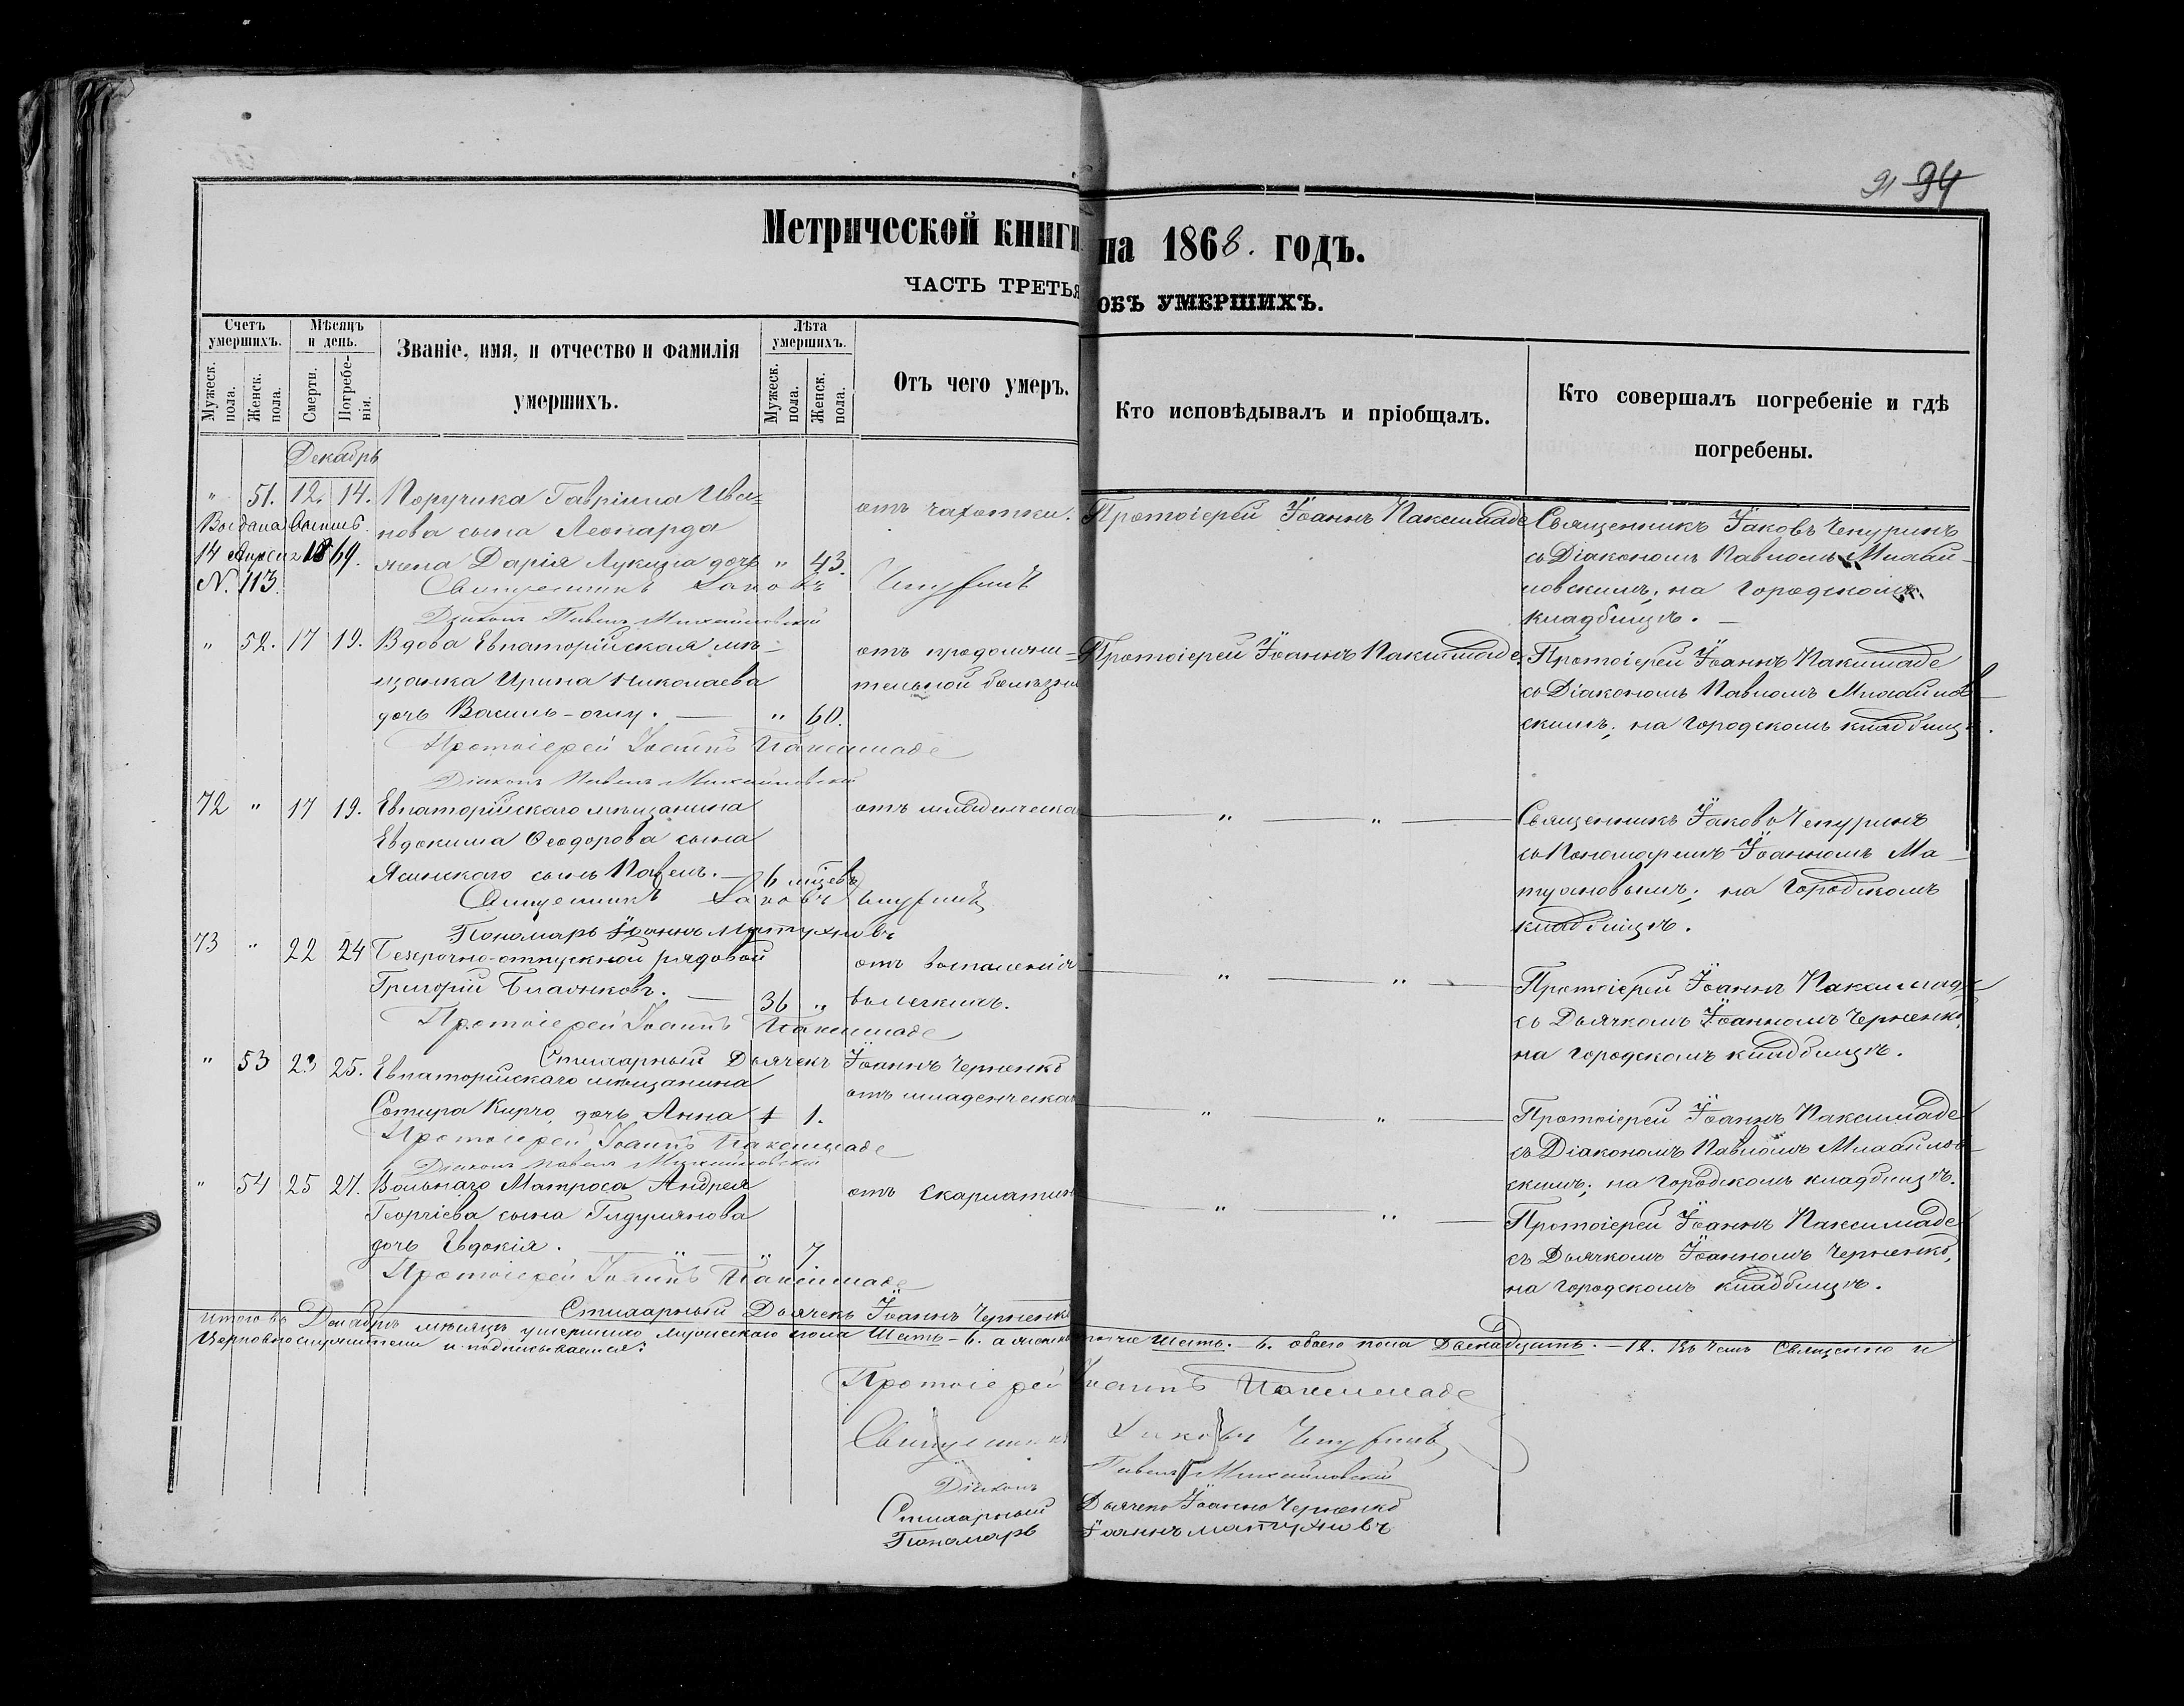 91 94
Метрической книги на 1868. годъ.
ЧАСТЬ ТРЕТЬЯ ОБЪ УМЕРШИХЪ.
Счетъ умершихъ.
Мужеск. пола.
Женск. пола.
Мѣсяцъ и день.
Смерти.
Погребенія.
Званіе, имя, и отчество и фамилія
умершихъ.
Лѣта умершихъ.
Мужеск. пола.
Женск. пола.
Отъ чего умеръ.
Кто исповѣдывалъ и пріобщалъ.
Кто совершалъ погребеніе и гдѣ
погребены.
Декабрь
" 51. 12. 14. Поручика Гавріила Ива=
нова сына Леонарда
жена Дарія Лукина дочь " 43.
отъ чахотки.
Протоіерей Іоаннъ Паксимаде
Священникъ Іаковъ Чепуринъ
съ Діакономъ Павломъ Михай-
ловскимъ; на городскомъ
кладбищѣ. —
14 1869.
N. 113.
Священникъ Іаковъ Чепуринъ
Діаконъ Павелъ Михайловскій
" 52. 17 19. Вдова Евпаторійская мѣ-
щанка Ирина Николаева
дочь Василь-оглу. — " 60.
отъ продолжи-
тельной болѣзни
Протоіерей Іоаннъ Паксимаде.
Протоіерей Іоаннъ Паксимаде
съ Діакономъ Павломъ Михайлов-
скимъ; на городскомъ кладбищѣ.
Протоіерей Іоаннъ Паксимаде
Діаконъ Павелъ Михайловскій
72 " 17 19. Евпаторійскаго мѣщанина
Евдокима Ѳеодорова сына
Ясинскаго сынъ Павелъ. — 6 мцевъ
отъ младенческа
" "
Священникъ Іаковъ Чепуринъ
съ Пономаремъ Іоанномъ Ма-
тухновымъ; на городскомъ
кладбищѣ.
Священникъ Іаковъ Чепуринъ
Пономарь Іоаннъ Матухновъ
73 " 22 24 Безсрочно-отпускной рядовой
Григорій — 36 "
отъ воспаленія
въ легкихъ.
" "
Протоіерей Іоаннъ Паксимаде
съ Дьячкомъ Іоанномъ Черненко,
на городскомъ кладбищѣ.
Протоіерей Іоаннъ Паксимаде
Стихарный Дьячекъ Іоаннъ Черненко
" 53 23 25. Евпаторійскаго мѣщанина
Сотира Кирчо, дочь Анна 1 1.
отъ младенческа
" "
Протоіерей Іоаннъ Паксимаде
съ Діакономъ Павломъ Михайлов-
скимъ; на городскомъ кладбищѣ.
Протоіерей Іоаннъ Паксимаде
Діаконъ Павелъ Михайловскій
" 54 25 27. Вольнаго Матроса Андрея
Георгіева сына Гидулянова
дочь Евдокія. — " — " 7.
отъ скарлатин
" "
Протоіерей Іоаннъ Паксимаде
съ Дьячкомъ Іоанномъ Черненко,
на городскомъ кладбищѣ.
Протоіерей Іоаннъ Паксимаде
Стихарный Дьячекъ Іоаннъ Черненко
Итого въ Декабрѣ мѣсяцѣ умершихъ мужескаго пола Шесть - 6. а женскаго Шесть. - 6. обоего пола Двенадцать. - 12. Въ чемъ Священно и
Церковнослужители и подписываемся:
Протоіерей Іоаннъ Паксимаде
Священникъ Іаковъ Чепуринъ
Діаконъ Павелъ Михайловскій
Стихарный Дьячекъ Іоаннъ Черненко
Пономарь Іоаннъ Матухновъ